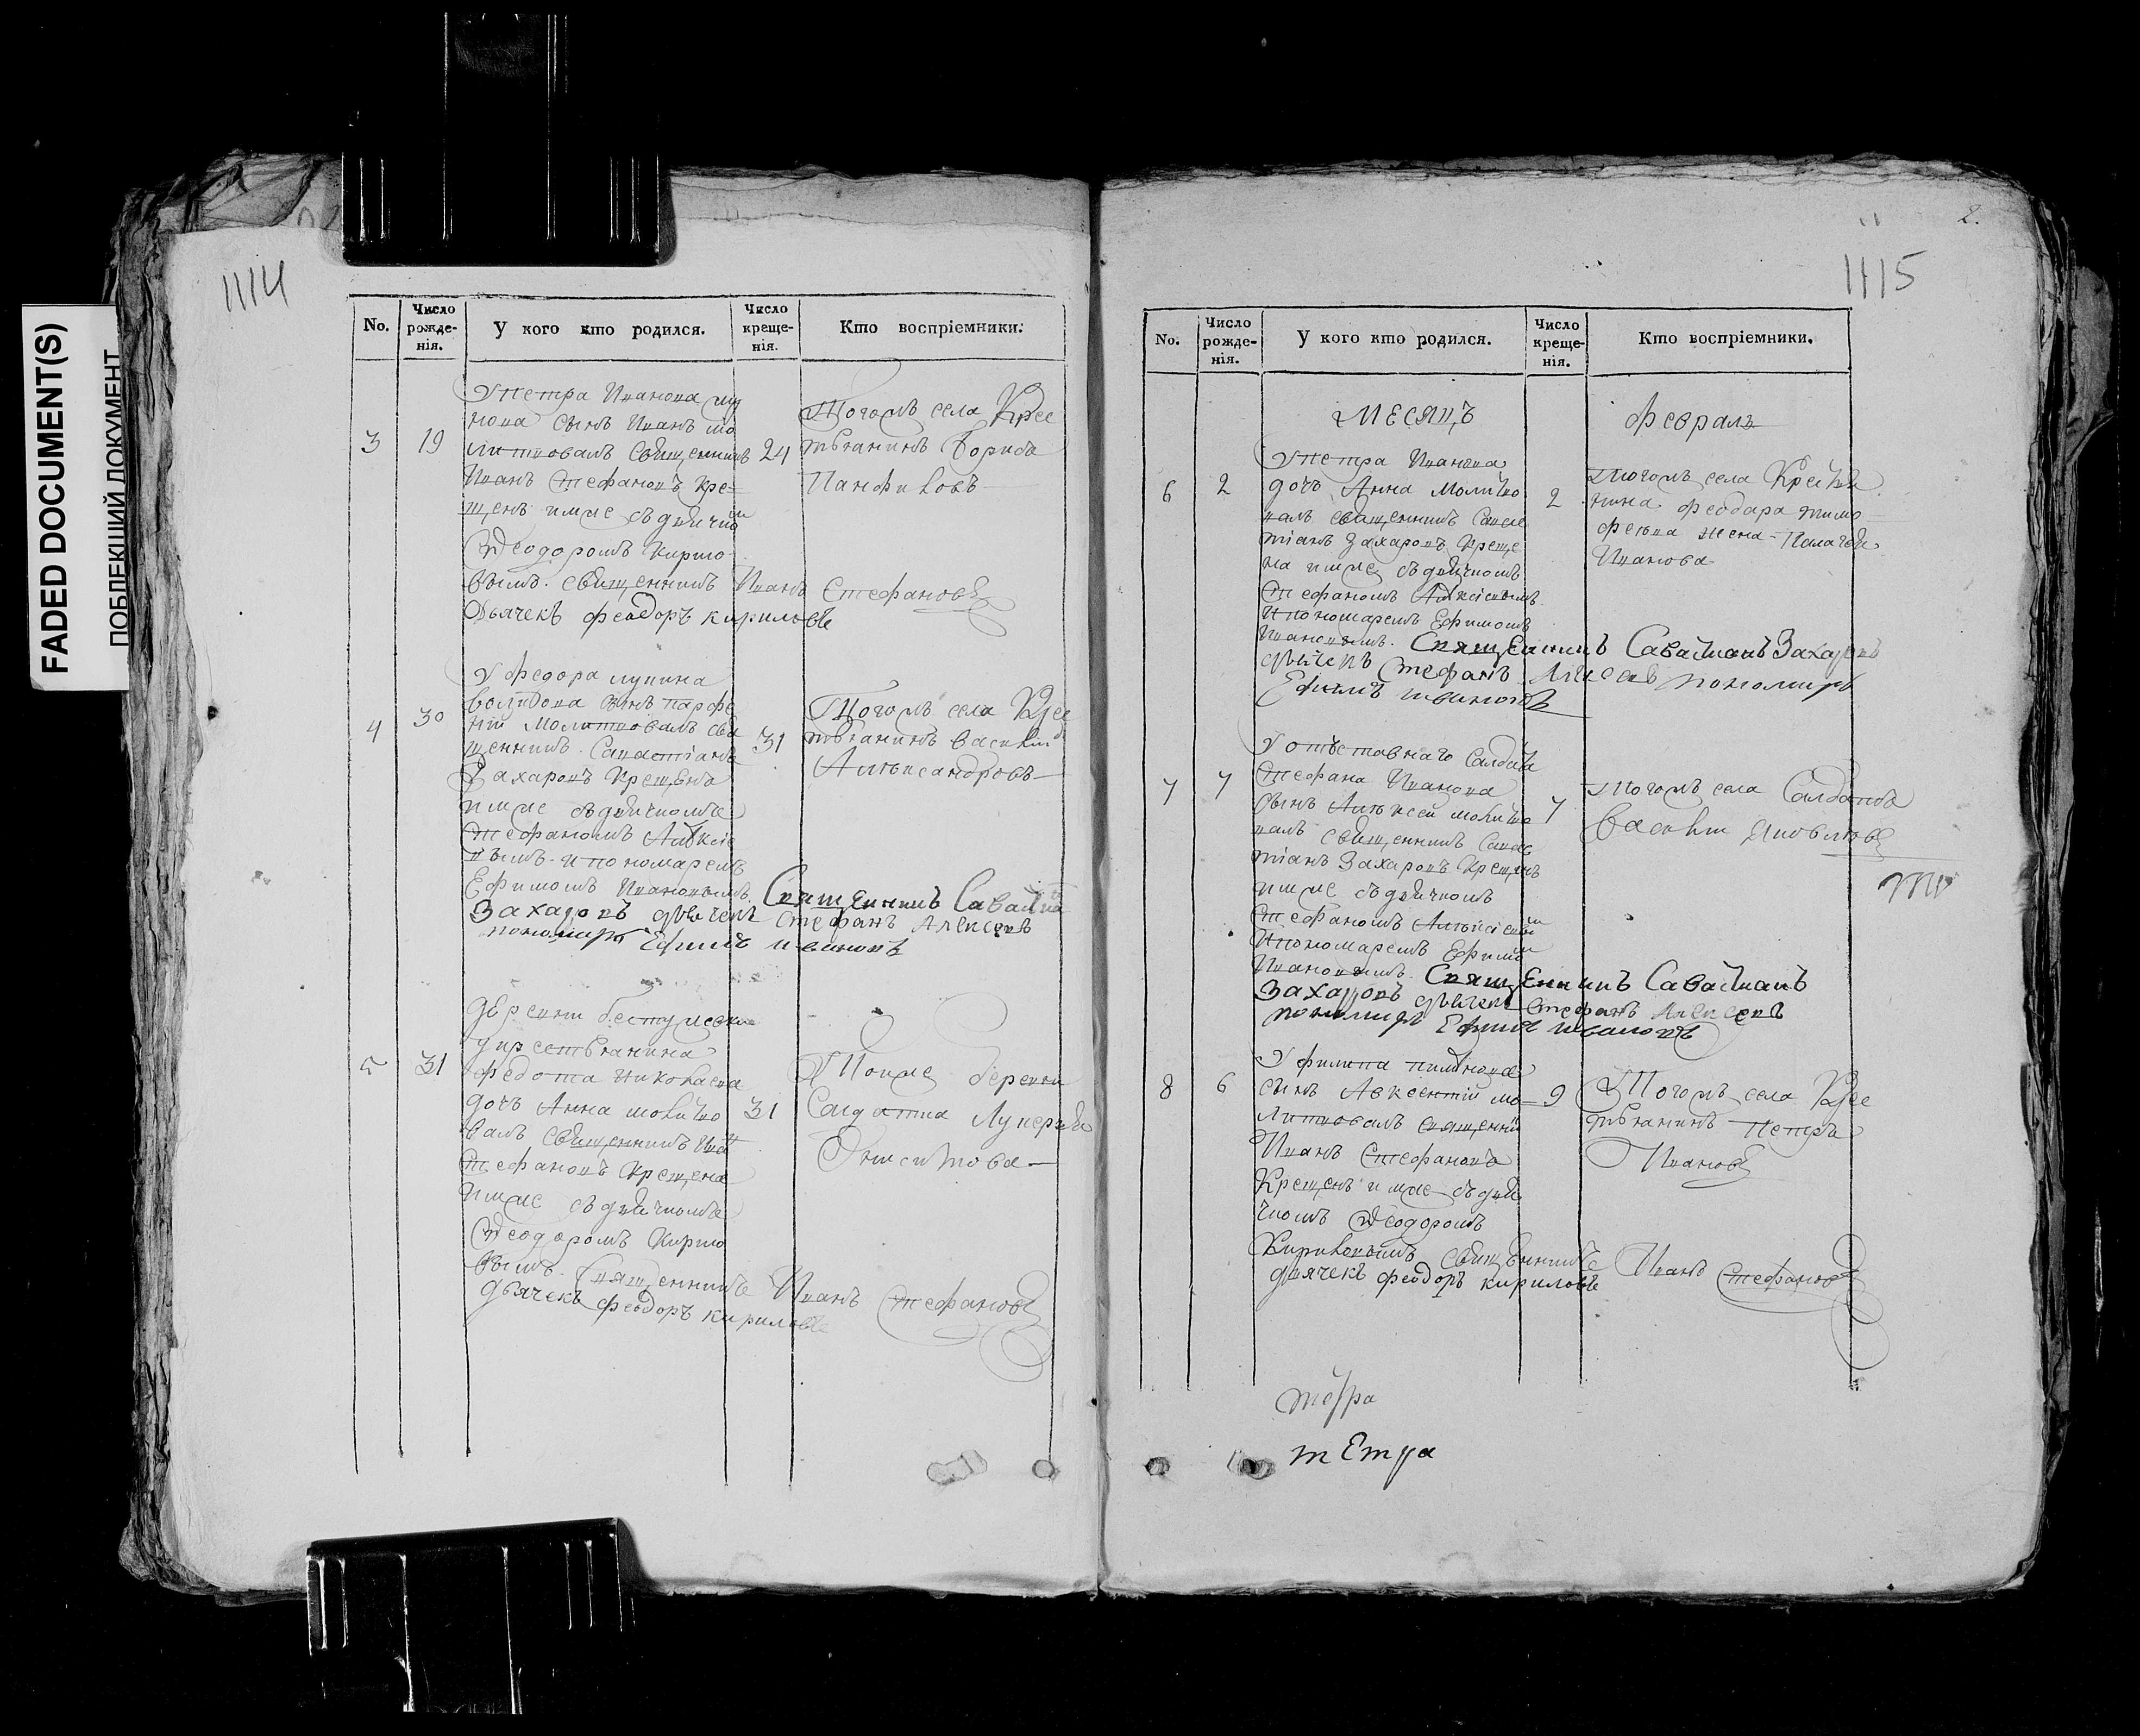 FADED DOCUMENT(S)
ПОБЛЕКШИЙ ДОКУМЕНТ
1114
No.
Число рожде-нія.
У кого кто родился.
Число креще-нія.
Кто воспріемники.
3
19
У петра Иванова
сынъ Иванъ мо
литвовалъ священникъ
Иванъ Стефановъ кре-
щенъ имже съ дьячко
Феодоромъ Кирило
вымъ. священникъ Иванъ Стефановъ
Дьячекъ феодоръ кириловъ
24
Тогожъ села Крес
тьянинъ Борисъ
Панфиловъ
4
30
У федора лупина
сынъ парфе
ній молитвовалъ свя
щенникъ Савастіанъ
Захаровъ крещенъ
имже съ дьячкомъ
Стефаномъ Алексіе
вымъ и пономаремъ
Ефимомъ Ивановымъ. Священникъ Савастиа
Захаровъ дьячекъ стефанъ Алексеевъ
пономарь Ефимъ ивановъ
31
Тогожъ села Крес
тьянинъ василий
Александровъ
5
31
деревни
у крестьянина
федота николаева
дочь Анна молитво
валъ священникъ Ива
Стефановъ крещена
имже съ дьячкомъ
Феодоромъ Кирило
вымъ. Священникъ Иванъ Стефановъ
дьячекъ феодоръ кириловъ
31
Тоиже деревни
Салдатка Лукерья
1115
2.
No.
Число рожде-нія.
У кого кто родился.
Число креще-нія.
Кто воспріемники.
МЕСЯЦЪ
февраль
6
2
У петра Иванова
дочь Анна молитво
валъ священникъ Савас
тіанъ Захаровъ креще
на имже съ дьячкомъ
Стефаномъ Алексіевымъ
и пономаремъ Ефимомъ
Ивановымъ. Священникъ Савастианъ Захаровъ
дьячекъ Стефанъ Алексеевъ пономарь
Ефимъ ивановъ
2
Тогожъ села Крестья
нина феодора тимо
феева жена Палагея
Иванова
7
7
У отставнаго салдата
Стефана Иванова
сынъ Алексей молитво
валъ священникъ Савас
тіанъ Захаровъ крещенъ
имже съ дьячкомъ
Стефаномъ Алексіевы
и пономаремъ Ефимо
Ивановымъ. Священникъ Савастианъ
Захаровъ дьячекъ стефанъ Алексеевъ
пономарь Ефимъ ивановъ
7
Тогожъ села Салдатъ
василий яковлевъ
8
6
У филипа
сынъ Авксентий мо-
литвовалъ священни
Иванъ Стефановъ
Крещенъ имже съ дья
чкомъ Феодоромъ
Кириловымъ священникъ Иванъ Стефановъ
дьячекъ феодоръ кириловъ
9
Тогожъ села Крес
тьянинъ Петръ
Ивановъ
тЕтра